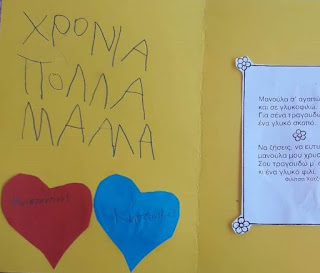 ΧΡΟΝΙΑ
ΠΟΛΛΑ
ΜΑΜΑ
Μανούλα σ' αγαπώ
και σε γλυκοφιλώ.
Για σένα τραγουδώ
ένα γλυκό σκοπό.
Να ζήσεις, να ευτυ
μανούλα μου χρυσ
Σου τραγουδώ μ'
κι ένα γλυκό φιλί.